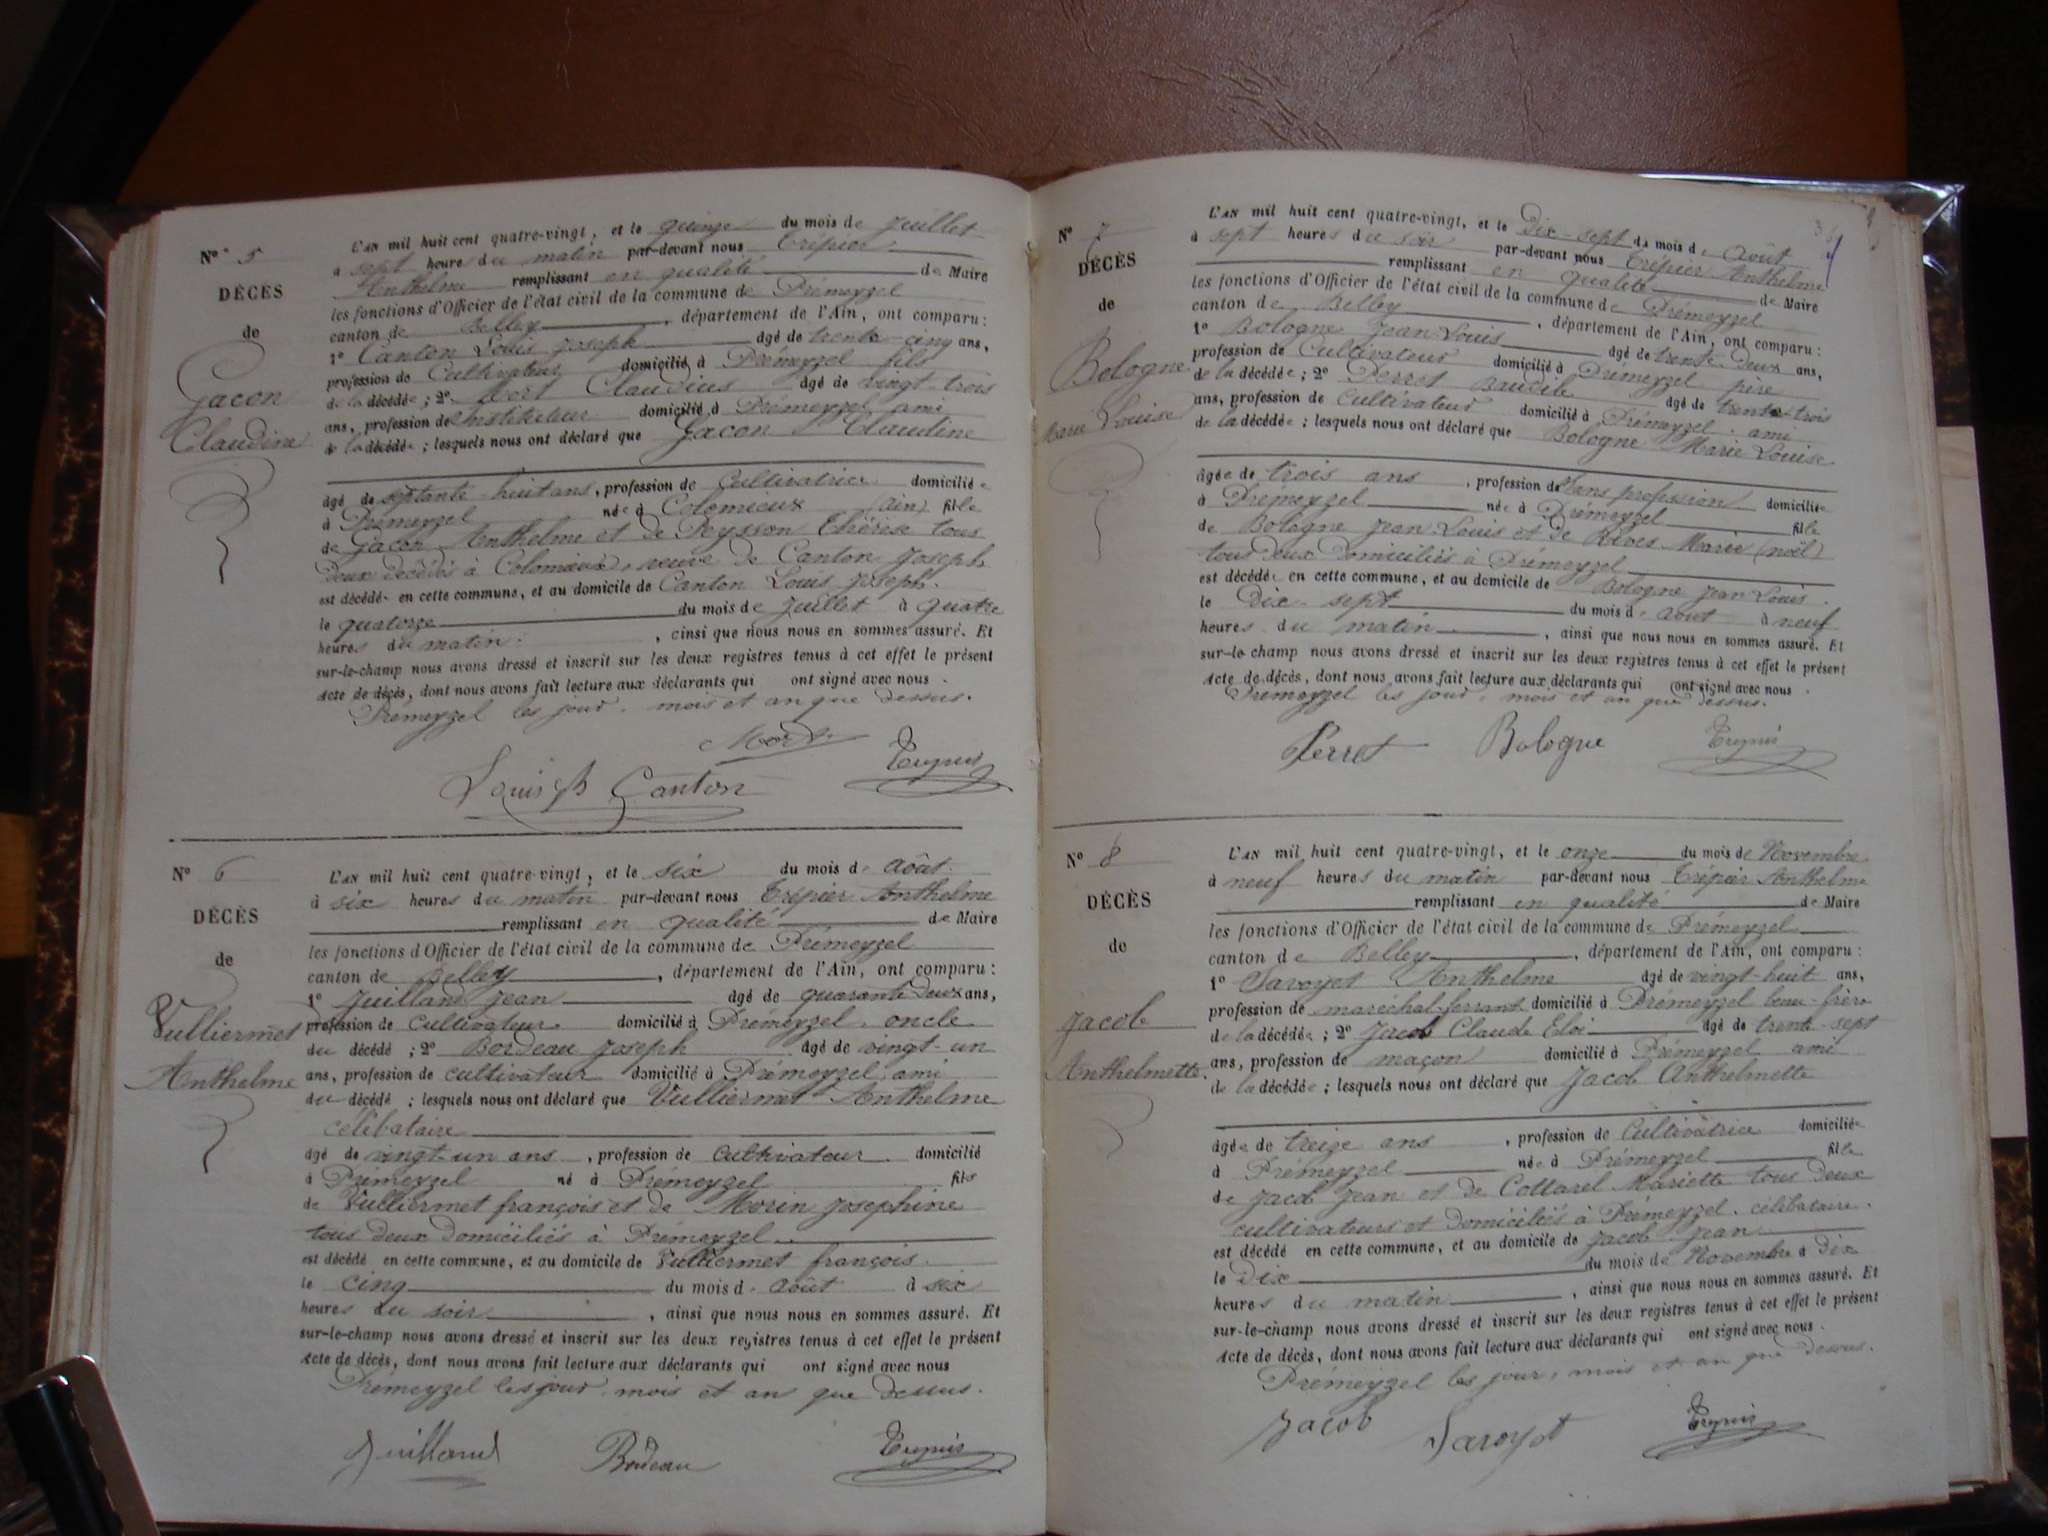 N° 5
DÉCÈS
de
Gacon
Claudine
L'AN mil huit cent quatre-vingt, et le quinze du mois de Juillet
à sept heures du matin par-devant nous Trépier
Anthelme remplissant en qualité de Maire
les fonctions d'Officier de l'état civil de la commune de Prémeyzel
canton de Belley, département de l'Ain, ont comparu :
1° Canton Louis Joseph âgé de trente-cinq ans,
profession de Cultivateur domicilié à Prémeyzel fils
de la décédée ; 2° Claudius âgé de vingt-trois
ans, profession de Instituteur domicilié à Prémeyzel ami
de la décédée ; lesquels nous ont déclaré que Gacon Claudine
âgé de septante-huit ans, profession de Cultivatrice domiciliée
à Prémeyzel née à Colomieux (Ain) fille
de Gacon Anthelme et de Peysson Thérèse tous
deux décédés à Colomieux, veuve de Canton Joseph
est décédée en cette commune, et au domicile de Canton Louis Joseph.
le quatorze du mois de Juillet à quatre
heures du matin, ainsi que nous nous en sommes assuré. Et
sur-le-champ nous avons dressé et inscrit sur les deux registres tenus à cet effet le présent
acte de décès, dont nous avons fait lecture aux déclarants qui ont signé avec nous.
Prémeyzel les jour, mois et an que dessus.
Louis Jh Canton
N° 6
DÉCÈS
de
Vulliermet
Anthelme
L'AN mil huit cent quatre-vingt, et le six du mois d'août
à six heures du matin par-devant nous Trépier Anthelme
remplissant en qualité de Maire
les fonctions d'Officier de l'état civil de la commune de Prémeyzel
canton de Belley, département de l'Ain, ont comparu :
1° Juilland Jean âgé de quarante deux ans,
profession de cultivateur domicilié à Prémeyzel, oncle
du décédé ; 2° Bordeau Joseph âgé de vingt-un
ans, profession de cultivateur domicilié à Prémeyzel ami
du décédé ; lesquels nous ont déclaré que Vulliermet Anthelme
célibataire
âgé de vingt-un ans, profession de cultivateur domicilié
à Prémeyzel né à Prémeyzel fils
de Vulliermet françois et de Morin Josephine
tous deux domiciliés à Prémeyzel
est décédé en cette commune, et au domicile de Vulliermet françois.
le cinq du mois d'août à six
heures du soir, ainsi que nous nous en sommes assuré. Et
sur-le-champ nous avons dressé et inscrit sur les deux registres tenus à cet effet le présent
acte de décès, dont nous avons fait lecture aux déclarants qui ont signé avec nous
Prémeyzel les jour, mois et an que dessus.
Juilland Bordeau
N° 7
DÉCÈS
de
Bologne
Marie Louise
L'AN mil huit cent quatre-vingt, et le Dix-sept du mois d'août
à sept heures du soir par-devant nous Trépier Anthelme
remplissant en qualité de Maire
les fonctions d'Officier de l'état civil de la commune de Prémeyzel
canton de Belley, département de l'Ain, ont comparu :
1° Bologne Jean Louis âgé de trente-deux ans,
profession de Cultivateur domicilié à Prémeyzel père
de la décédée ; 2° Perret âgé de trente-trois
ans, profession de Cultivateur domicilié à Prémeyzel, ami
de la décédée ; lesquels nous ont déclaré que Bologne Marie Louise
âgée de trois ans, profession de Sans profession domiciliée
à Prémeyzel née à Prémeyzel fille
de Bologne Jean Louis et de Rives Marie (noël)
tous deux domiciliés à Prémeyzel
est décédée en cette commune, et au domicile de Bologne Jean Louis.
le Dix-sept du mois d'août à neuf
heures du matin, ainsi que nous nous en sommes assuré. Et
sur-le-champ nous avons dressé et inscrit sur les deux registres tenus à cet effet le présent
acte de décès, dont nous avons fait lecture aux déclarants qui ont signé avec nous.
Prémeyzel les jour, mois et an que dessus.
Perret Bologne
N° 8
DÉCÈS
de
Jacob
Anthelmette
L'AN mil huit cent quatre-vingt, et le onze du mois de Novembre
à neuf heures du matin par-devant nous Trépier Anthelme
remplissant en qualité de Maire
les fonctions d'Officier de l'état civil de la commune de Prémeyzel
canton de Belley, département de l'Ain, ont comparu :
1° Savoyet Anthelme âgé de vingt-huit ans,
profession de maréchal-ferrant domicilié à Prémeyzel beau-frère
de la décédée ; 2° Jacob Claude Eloi âgé de trente-sept
ans, profession de maçon domicilié à Prémeyzel ami
de la décédée ; lesquels nous ont déclaré que Jacob Anthelmette
âgée de treize ans, profession de Cultivatrice domiciliée
à Prémeyzel née à Prémeyzel fille
de Jacob Jean et de Collarel Mariette tous deux
cultivateurs et domiciliés à Prémeyzel. célibataire.
est décédé en cette commune, et au domicile de Jacob Jean
le Dix du mois de Novembre à dix
heures du matin, ainsi que nous nous en sommes assuré. Et
sur-le-champ nous avons dressé et inscrit sur les deux registres tenus à cet effet le présent
acte de décès, dont nous avons fait lecture aux déclarants qui ont signé avec nous.
Prémeyzel les jour, mois et an que dessus.
Jacob Savoyet